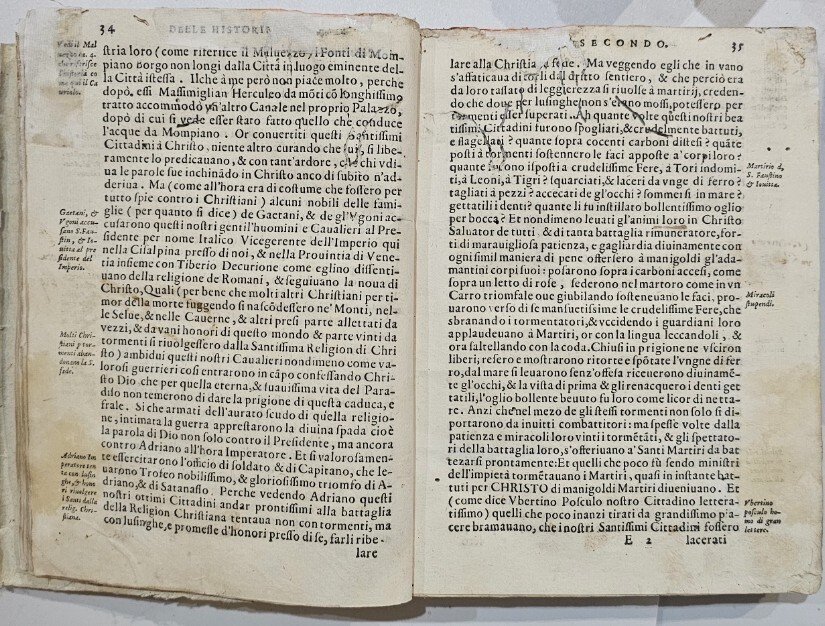 34
DELLE HISTORIE
Vedi il Mal
stria loro (come riferisce il Maluezzo) i Fonti di Mom-
piano Borgo non longi dalla Città in luogo eminente del-
la Città istessa. Ilche à me però non piace molto, perche
dopò, essi Massimiglian Herculeo da mõti cõ longhissimo
tratto accommodò vn'altro Canale nel proprio Palazzo,
dopò di cui si vede esser stato fatto quello che conduce
l'acque da Mompiano. Or conuertiti questi Santissimi
Cittadini à Christo, niente altro curando che lui, si libe-
ramente lo predicauano, & con tant'ardore, che chi vdi-
ua le parole sue inchinãdo in Christo anco di subito n'ad-
deriua. Ma (come all'hora era di costume che fossero per
tutto spie contro i Christiani) alcuni nobili delle fami-
glie (per quanto si dice) de Gaetani, & de gl'Vgoni ac-
cusarono questi nostri gentil'huomini e Caualieri al Pre-
sidente per nome Italico Vicegerente dell'Imperio qui
nella Cisalpina presso di noi, & nella Prouintia di Vene-
tia insieme con Tiberio Decurione come eglino dissenti-
uano della religione de Romani, & seguiuano la noua di
Christo, Quali (per bene che molti altri Christiani per ti-
mor della morte fuggendo si nascõdessero ne' Monti, nel-
le Selue, & nelle Cauerne, & altri presi parte allettati da
vezzi, & da vani honori di questo mondo & parte vinti da
tormenti si riuolgessero dalla Santissima Religion di Chri
sto) ambidui questi nostri Caualieri nondimeno come va-
lorosi guerrieri cosi entrarono in cãpo confessando Chri-
sto Dio che per quella eterna, & suauissima vita del Para-
diso non temerono di dare la prigione di questa caduca, e
frale. Si che armati dell'aurato scudo di quella religio-
ne, intimata la guerra apprestarono la diuina spada cioè
la parola di Dio non solo contro il Presidente, ma ancora
contro Adriano all'hora Imperatore. Et si valorosamen-
te essercitarono l'officio di soldato & di Capitano, che le-
uarono Trofeo nobilissimo, & gloriosissimo triomfo di A-
driano, & di Satanasso. Perche vedendo Adriano questi
nostri ottimi Cittadini andar prontissimi alla battaglia
della Religion Christiana tentaua non con tormenti, ma
con lusinghe, e promesse d'honori presso di se, farli ribe-
lare
Gaetani, &
Vgoni accu
sano S. Fau-
stin, & Io-
uita al pre
sidente del
Imperio.
Molti Chri-
stiani p tor-
menti aban-
donano la S.
fede.
Adriano Im
peratore ten
ta con lusin
ghe, & hono
ri riuolgere
i Santi dalla
relig. Chri-
stiana.
SECONDO.
35
lare alla Christiana fede. Ma veggendo egli che in vano
s'affaticaua di torli dal dritto sentiero, & che perciò era
da loro tassato di leggierezza si riuolse à martirij, creden-
do che doue per lusinghe non s'erano mossi, potessero per
tormenti esser superati. Ah quante volte questi nostri bea
tissimi Cittadini furono spogliati, & crudelmente battuti,
e flagellati? quante sopra cocenti carboni distesi? quãte
posti à tormenti sostennero le faci apposte a' corpi loro?
quante furono isposti a crudelissime Fere, à Tori indomi-
ti, à Leoni, à Tigri? squarciati, & laceri da vnge di ferro?
tagliati à pezzi? accecati de gl'occhi? sommersi in mare?
gettatili i denti? quante li fu instillato bollentissimo oglio
per bocca? Et nondimeno leuati gl'animi loro in Christo
Saluator de tutti, & di tanta battaglia rimuneratore, for-
ti di marauigliosa patienza, e gagliardia diuinamente con
ogni simil maniera di pene offersero à manigoldi gl'ada-
mantini corpi suoi: posarono sopra i carboni accesi, come
sopra un letto di rose, sederono nel martoro come in vn
Carro triomfale oue giubilando sosteneuano le faci, pro-
uarono verso di se mansuetissime le crudelissime Fere, che
sbranando i tormentatori, & vccidendo i guardiani loro
applaudeuano à Martiri, or con la lingua leccandoli, &
ora saltellando con la coda. Chiusi in prigione ne vsciron
liberi; resero e mostrarono ritorte e spõtate l'vngne di fer
ro, dal mare si leuarono senz'offesa riceuerono diuinamẽ-
te gl'occhi, & la vista di prima & gli renacquero i denti get
tatili, l'oglio bollente beuuto fu loro come licor di netta-
re. Anzi che nel mezo de gli stessi tormenti non solo si di-
portarono da inuitti combattitori: ma spesse volte dalla
patienza e miracoli loro vinti i tormẽtãti, & gli spettato-
ri della battaglia loro, s'offeriuano a' Santi Martiri da bat
tezarsi prontamente: Et quelli che poco fù sendo ministri
dell'impietà tormẽtauano i Martiri, quasi in instante bat-
tuti per CHRISTO di manigoldi Martiri diueniuano. Et
(come dice Vbertino Posculo nostro Cittadino lettera-
tissimo) quelli che poco inanzi tirati da grandissimo pia-
cere bramauano, che i nostri Santissimi Cittadini fossero
E 2
lacerati
Martirio di
S. Faustino
& Iouita.
Miracoli
stupendi.
Vbertino
posculo ho-
mo di gran
lettere.